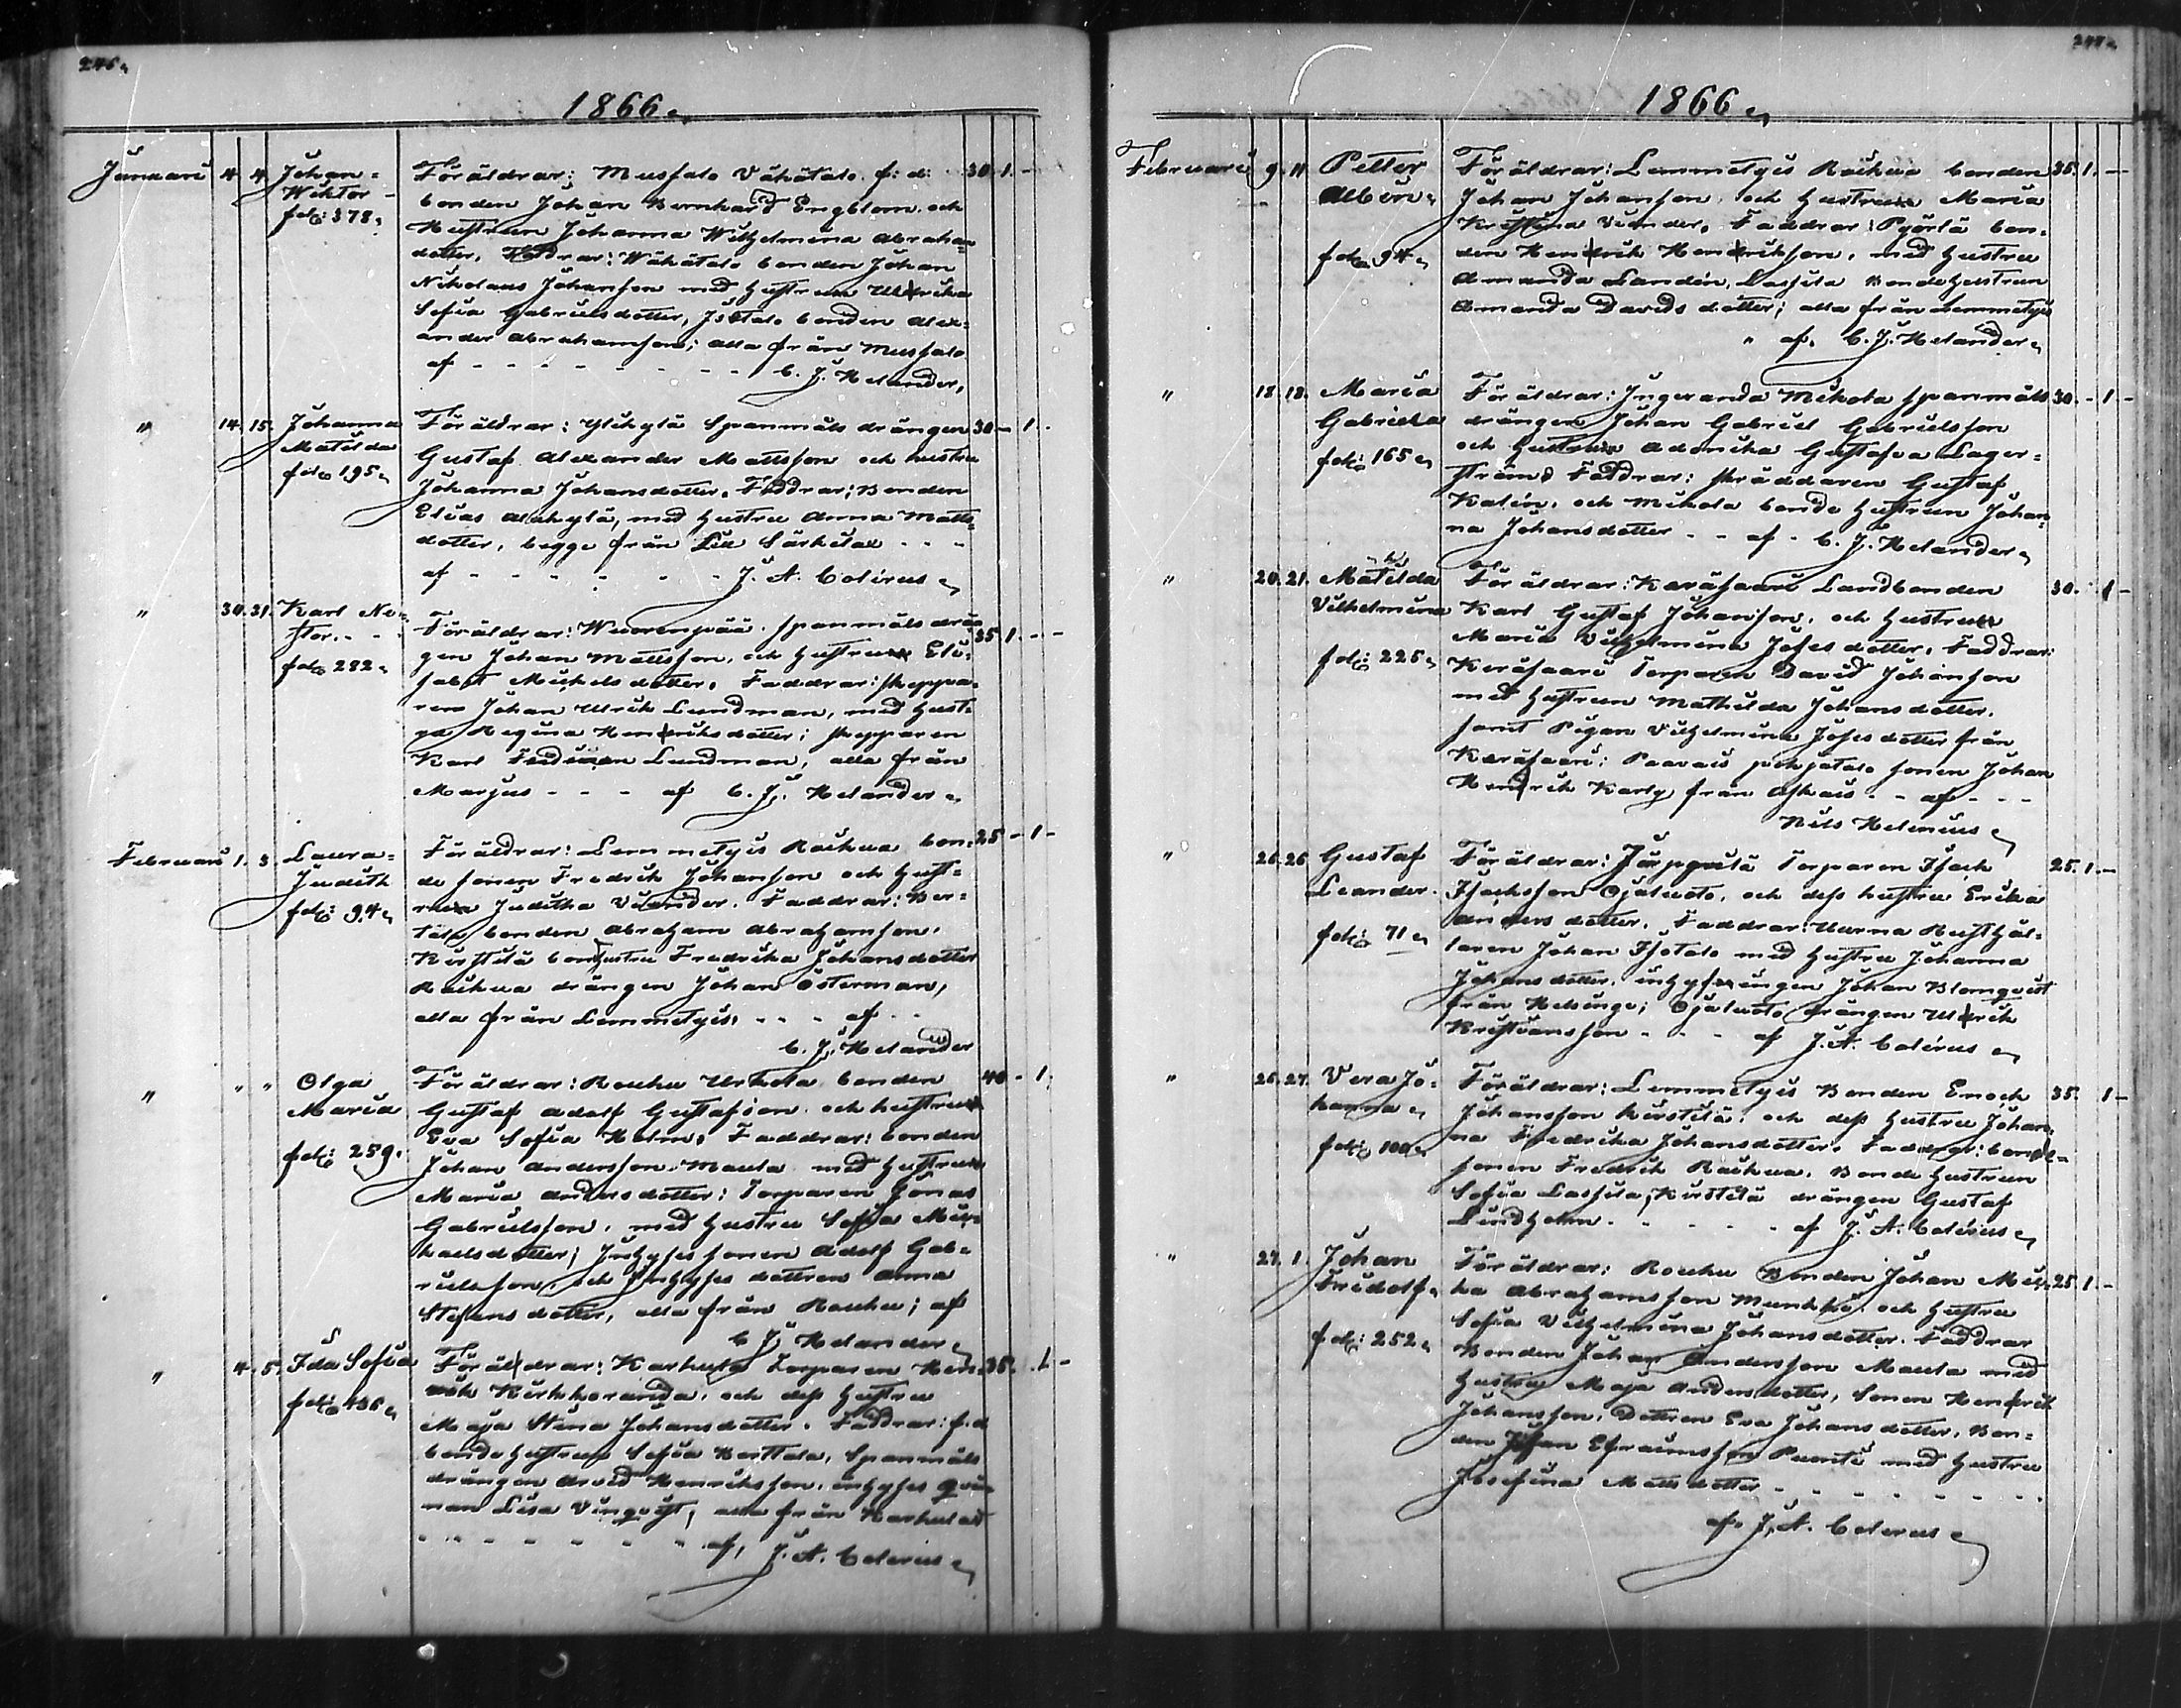 246.
1866.
Januari 4. 4. Johan Föräldrar: Musfalo Vähätalo f: d: 30. 1. -
Wiktor bonden Johan Bernhard Engblom och
fol: 378. Hustrun Johanna Wilhelmina Abraham
dotter, Faddrar: Wähätalo bonden Johan
Nikolaus Johansson med Hustrun Ulrika
Sofia Gabrielsdotter, Isotalo bonden Alex=
ander Abrahamsson; alla från Musfalo
af - - - - - - - C. J. Helander.
" 14. 15. Johanna Föräldrar: Ylikylä Spanmåls drängen 30 - 1 -
Matilda Gustaf Alexander Mattsson och hustru
fol. 195. Johanna Johansdotter. Faddrar: Bonden
Elias Alikylä, med Hustru Anna Matts=
dotter, begge från Särkilax - - -
af - - - - - - J. A. Colérus
" 30. 31. Karl Ne=
stor. - - Föräldrar: Wuorenpää Spanmåls drän 35. 1. - -
fol. 282. gen Johan Mattsson, och Hustrun Eli=
sabet Mickelsdotter. Faddrar: skeppa=
ren Johan Ulrik Lundman, med Hust=
Regina Hendriksdotter; skepparen
Karl Lundman, alla från
Marjus - - - af C. J. Helander
Februari 1. 3. Laura= Föräldrar: Lemmetyis Raikua bon= 25 - 1 -
Judith de sonen Fredrik Johansson och Hust=
fol: 94. run Juditha Viander. Faddrar: Ber=
tälä bonden Abraham Abrahamsson.
Kirstilä bond hustru Fredrika Johansdotter
Raikua drängen Johan Österman,
alla från Lemmetyis. - - - af - -
C. J. Helander
" " " Olga Föräldrar: Rouhu Urhola bonden 40 - 1.
Maria Gustaf Adolf Gustafsson och hustrun
Eva Sofia Holm. Faddrar: bonden
fol: 259. Johan Andersson Maula med Hustrun
Maria Andersdotter; Torparen Jonas
Gabrielsson, med Hustru Sofia Mic=
kaelsdotter; Inhyses sonen Adolf Gab=
rielsson, och Inhyses dottren Anna
Stefansdotter, alla från Rouhu; af
C J Helander
" 4. 5. Ida Sofia Föräldrar: Karhula Torparen Hen= 35. 1 -
fol. 436. rik Kirkkoranda, och dess Hustru
Maja Stina Johansdotter. Faddrar: f. d
bonde Hustrun Sofia Herttala, Spanmåls
drängen Arvid Henriksson, inhyses qvin
nan Lisa Vinqvist, alla från Karhula
- - - - - - - af, J. A. Colerus
247.
1866.
Februari 9. 11 Petter Föräldrar: Lemmetyis Raikua bonden 35. 1. -
Albin. Johan Johansson och Hustrun Maria
Kristina Viander. Faddrar: Pyörlä bon=
fol. 94. den Hendrik Hendriksson, med Hustru
Amanda Landén, Lassila Bonde Hustrun
Amanda Davids dotter; alla från Lemmetyis
" af. C. J. Helander
" 18. 18. Maria Föräldrar: Ingeranda Mikola Spanmåls 30. - 1 -
Gabriela drängen Johan Gabriel Gabrielsson
fol: 165. och Hustrun Adonika Gustafva Lager=
ström. Faddrar: skräddaren Gustaf
Kalén, och Mikola bonde Hustrun Johan
na Johansdotter - - af - C. J. Helander
" 20. 21. Matilda Föräldrar: Karäsaari Landbonden 30. 1 -
Vilhelmina Karl Gustaf Johansson, och Hustrun
Maria Vilhelmina Josefsdotter. Faddrar:
fol: 225. Keräsaari Torparen David Johansson
med Hustrun Mathilda Johansdotter.
samt Pigan Vilhelmina Josefsdotter från
Keräsaari; Paavais sonen Johan
Hendrik Karly från Ashais - - af - - -
Nils Helenius
" 26. 26 Gustaf Föräldrar: Torparen Isack 25. 1. -
Leander. Isacksson Ojaluoto, och dess hustru Erika
Anders dotter. Faddrar: Uurna Rusthål=
fol: 71. laren Johan Isotalo med Hustru Johanna
Johansdotter, inhysingen Johan Blomqvist
från Helsinge; Ojaluoto drängen Ulrik
Kristiansson - - - af J. A. Colérus
" 26. 27. Vera Jo= Föräldrar: Lemmetyis Bonden Enoch 35. 1 -
hanna Johansson Kirstilä och dess Hustru Johan
fol: 100. na Fredrika Johansdotter. Faddrar: bonde=
sonen Fredrik Raikua. Bonde Hustrun
Sofia Lassila, Kirstilä drängen Gustaf
Lindholm. - - - - af J. A. Colérus
" 27. 1. Johan Föräldrar: Rouhu Bonden Johan Mic= 25. 1. -
Fridolf. ka Abrahamsson Munkki och Hustru
Sofia Vilhelmina Johansdotter. Faddrar
fol: 252. Bonden Johan Andersson Maula med
Hustru Maja Andersdotter, Sonen Hendrik
Johansson, Dottren Eva Johansdotter, Bon=
den Johan Efraimsson Puonti med Hustru
Josefina Mattsdotter - - - - - - -
af. J. A. Colerus